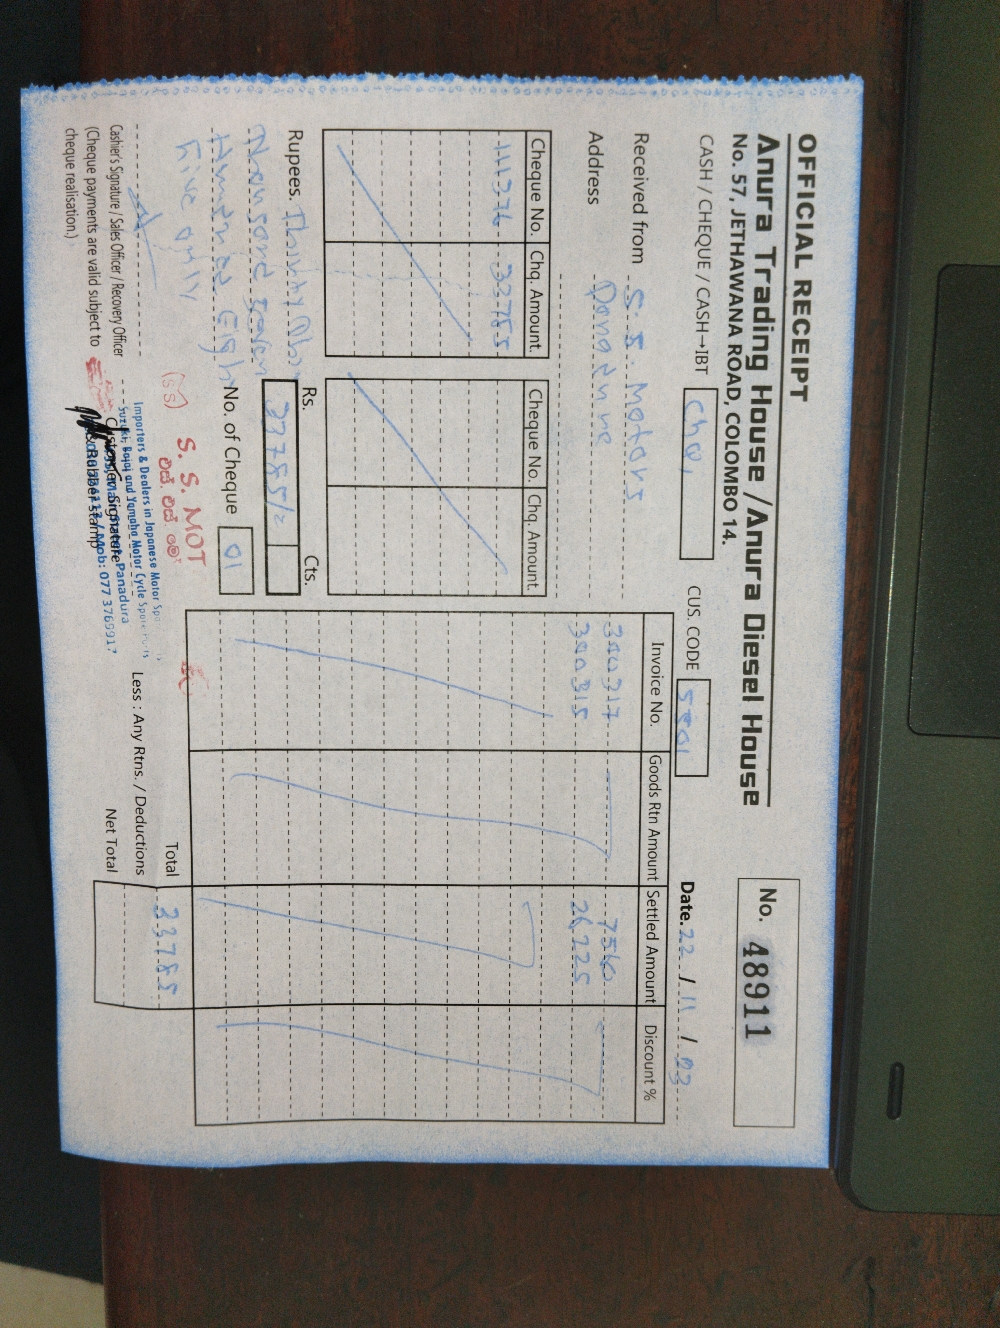 OFFICIAL RECEIPT
Anura Trading House / Anura Diesel House
No. 57, JETHAWANA ROAD, COLOMBO 14.
No. 48911
CASH / CHEQUE / CASH→IBT Chq, CUS. CODE 5801 Date. 22 / 11 / 03
Received from S. S. Motors
Address Panadura
Cheque No. Chq. Amount. Cheque No. Chq. Amount.
111376 33785
Invoice No. Goods Rtn Amount Settled Amount Discount %
300317 7560
300315 26225
Rupees. Thirty
Thousand Seven
Hundred Eigh
Five only
Rs. Cts.
33785/=
No. of Cheque 01
Total 33785
Less : Any Rtns. / Deductions
Net Total
(SS) S. S. MOT
එස්. එස්. මෝ
Importers & Dealers in Japanese Motor Spa
Suzuki, Bajaj and Yamaha Motor Cycle Spare Parts
Panadura
Mob: 077 3765917
Cashier's Signature / Sales Officer / Recovery Officer
Customer Signature
& Rubber Stamp
(Cheque payments are valid subject to
cheque realisation.)